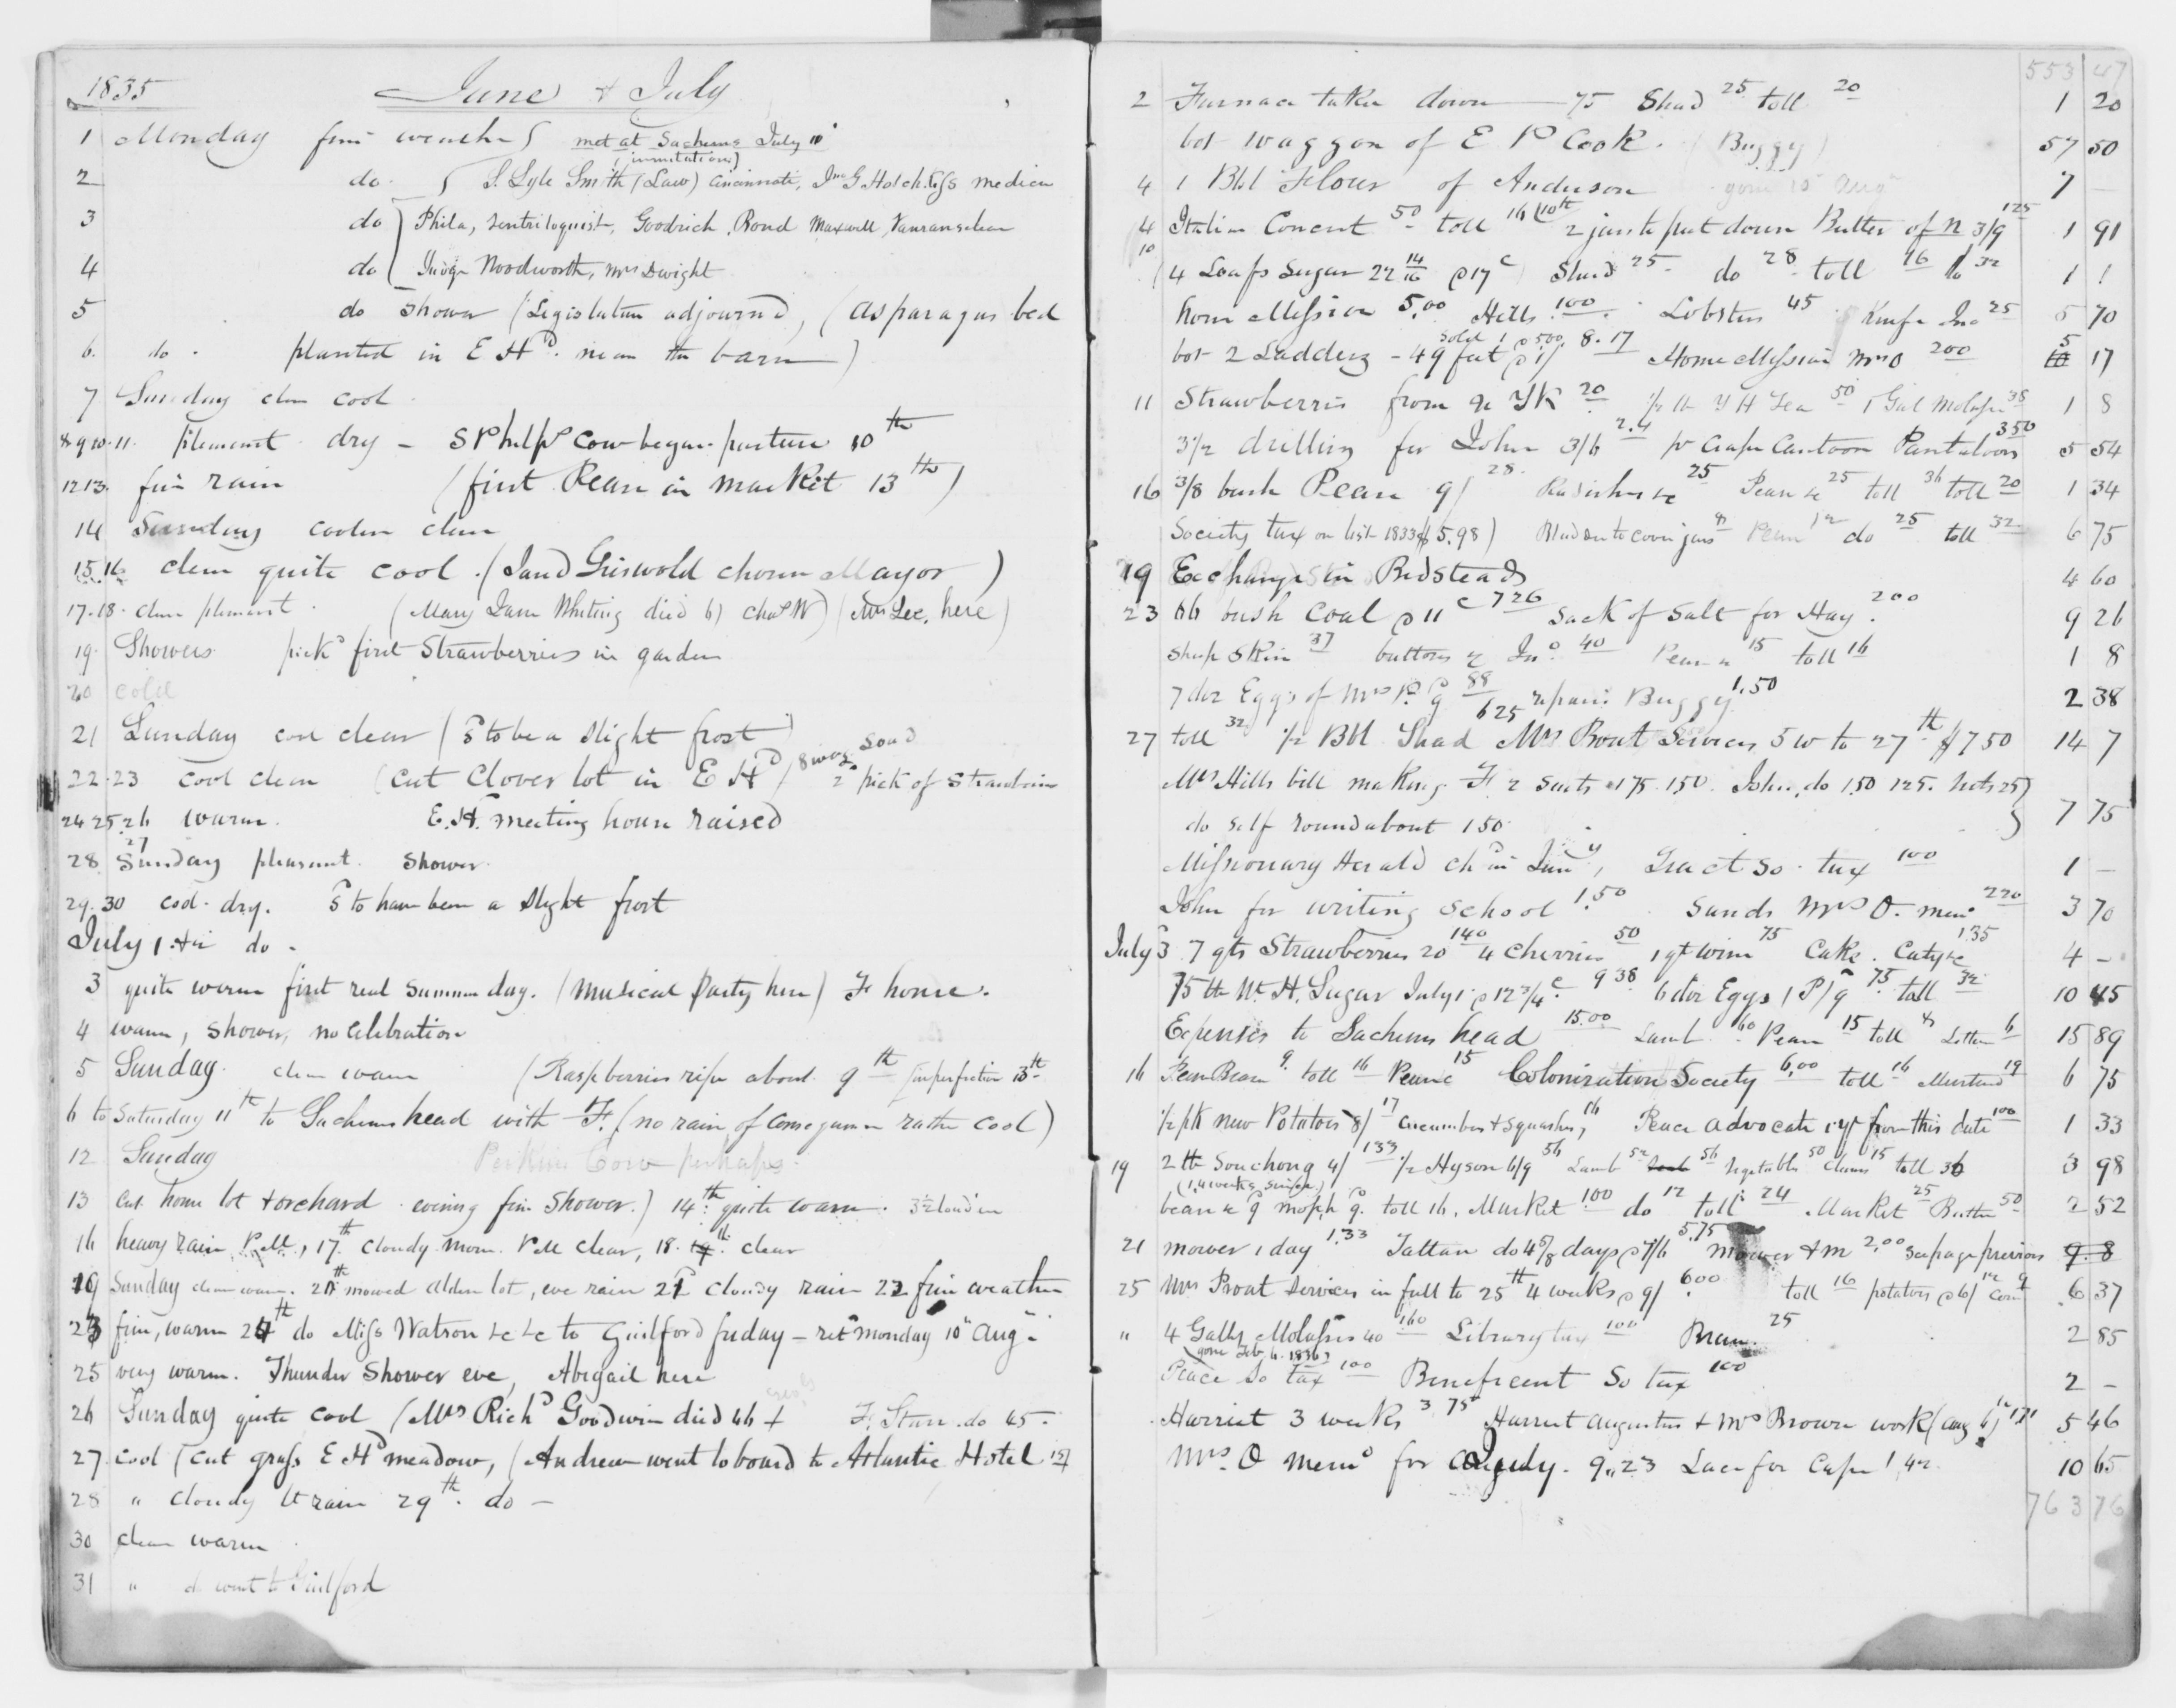 1835 June & July
1 Monday fine weather met at Sachems July 10
(invitation)
2 do S. Lyle Smith (Law) Cincinnati, Jno G Hotchkiss medicin
3 do Phila, Ventriloquist, Goodrich, Bond Maxwell, Vanranselear
4 do Judge Woodworth, Mrs Dwight
5 do Shower (Legislature adjourned, (asparagus bed
6. do . planted in E Hd. near the barn)
7 Sunday clear cool
8 9 10. 11. pleasant dry - S Phelps Cow began pasture 10th
12 13. fine rain (first Peas in market 13th)
14 Sunday cooler clear
15. 16. clear quite cool. (Jared Griswold chosen Mayor)
17. 18. clear pleasant. (Mary Jane Whiting died by Chas W) (Mrs Lee, here)
19. Showers pickd first Strawberries in garden
20 cold
21 Sunday cool clear (sd to be a slight frost)
22. 23 cool clear (Cut Clover lot in E Hd) 2 pick of Strawberries
24 25. 26 warm. E. H. meeting house raised
27
28 Sunday pleasant. Shower.
29. 30 cool. dry. sd to have been a slight frost
July 1. do -
3 quite warm first real Summer day. (Musical Party here) F home.
4 warm, Shower, no Celebration
5 Sunday. clear warm (Raspberries ripe about 9th in perfection 13th
6 to Saturday 11th to Sachems head with F. (no rain of consequence rather cool)
12 Sunday Perkins Cow perhaps.
13 Cut home lot & orchard. evening fine Shower.) 14th quite warm. 3½ load in
16 heavy rain P.M., 17th. Cloudy morn. P.M. Clear, 18. 19th. clear
19 Sunday clear warm. 20th mowed alden lot, eve rain 21 Cloudy rain 22 fine weather
23 fine, warm 24th do Miss Watson &c &c to Guilford friday - retd monday 10th Augt
25 very warm. Thunder Shower eve, Abigail here
26 Sunday quite cool (Mrs Richd Goodwin died 46 + F, Starr. do 45.
27. Cool (Cut grass E Hd meadow, (Andrew went to board to Atlantic Hotel
28 " Cloudy lt rain 29th. do -
30 clear warm
31 " do went to Guilford
553 47
2 Furnace taken down 75 Shad 25 toll 20 1 20
bot Waggon of E P Cook. (Buggy) 57 50
4 1 Bbl Flour of Anderson gone 15 Aug 7 -
4 Italian Concert 50 toll 16 (10th 2 jars to put down Butter of N 3/9 125 1 91
10 (4 Loafs Sugar 22 14/16 @ 17c Shad 25 do 28 toll 16 do 32 1 1
home Mission 5.00 Hills 100. Lobster 45 Knife Jno 25 5 70
sold 1 @ 500
bot 2 Ladders - 49 feet @ 1/ 8.17 Home Mission Mrs O 200 5 17
11 Strawberries from N Yk 20 ½ lb Y H Tea 50 1 Gal Molasses 38 1 8
3½ drilling for John 3/6 2.4 pr Crape Cantoon Pantaloons 350 5 54
16 3/8 bush Peas 9/ 28. Radishes &c 25 Peas &c 25 toll 36 toll 20 1 34
Society tax on list 1833 $5.98) Bladders to cover jars 8 Peas 12 do 25 toll 32 6 75
19 Exchange in Bedsteads 4 60
23 66 bush Coal @ 11c 726 Sack of Salt for Hay. 200 9 26
Sheep Skin 37 buttons &c Jno. 40 Peas &c 15 toll 16 1 8
7 doz Eggs of Mrs P. 88 repairs Buggy 1.50 2 38
27 toll 32 ½ Bbl Shad 625 Mrs Prout Services 5 w to 27th $7 50 14 7
Mrs Hills bill making F 2 Suits 175. 150. John, do 150 125.
do self roundabout 150. 7 75
Missionary Herald chd in Jany, Tract So. tax 100 1 -
John for writing School 1.50 Sands Mrs O. memo 220 3 70
July 3 7 qts Strawberries 20 140 4 Cherries 50 1 qt wine 75 Cake. 135 4 -
75 lb Wt. H. Sugar July 1 @ 12¾ c 9 38 6 doz Eggs 1 P/9 75 toll 32 10 45
Expenses to Sachems head 15.00 Lamb 60 Peas 15 toll 8 Letter 6 15 89
16 Peas Beans 9 toll 16 Peas &c 15 Colonization Society 6.00 toll 16 Mustard 19 6 75
½ pk new Potatoes 8/ 17 Cucumbers & Squashes, 16 Peace Advocate 1 yr from this date 100 1 33
19 2 lb Souchong 4/ 133 ½ Hyson 6/9 56 Lamb 52 56 Vegetables 50 Clams 15 toll 36 3 98
beans &c 9 mop 9. toll 16. Market 100 do 12 toll 24 Market 25 Butter 50 2 52
21 mower 1 day 1.33 Tallan do 4 5/8 days @ 7/6 5.75 mower & m 2.00 see page previous 9. 8
25 Mrs Prout Services in full to 25th 4 weeks @ 9/ 600 toll 16 potatoes @ 6/ 12 Corn 9 6 37
" 4 Galls Molasses 40 160 Library tax 100 Bran. 25 2 85
(gone Feb. 6. 1836)
Peace So tax 100 Beneficent So tax 100 2 -
Harriet 3 weeks 3 75 Harriet Augustus & Mrs Brown work (aug 6) 171 5 46
Mrs. O memo for July. 9.,23 Lace for Cape 1 42 10 65
763 76